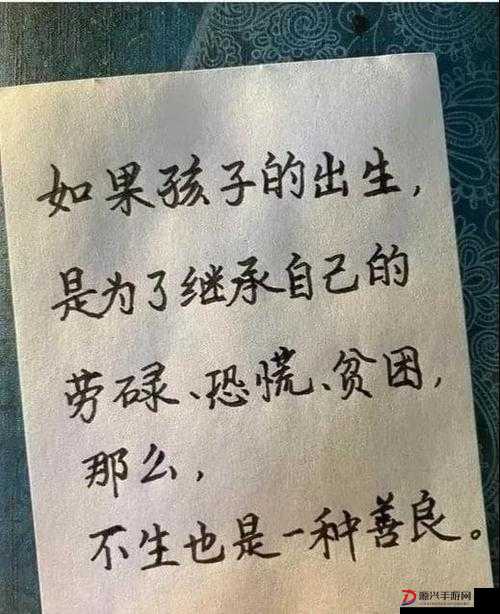 如果孩子的出生，
是为了继承自己的
劳碌、恐慌、贫困，
那么，
不生也是一种善良。
源兴手游网